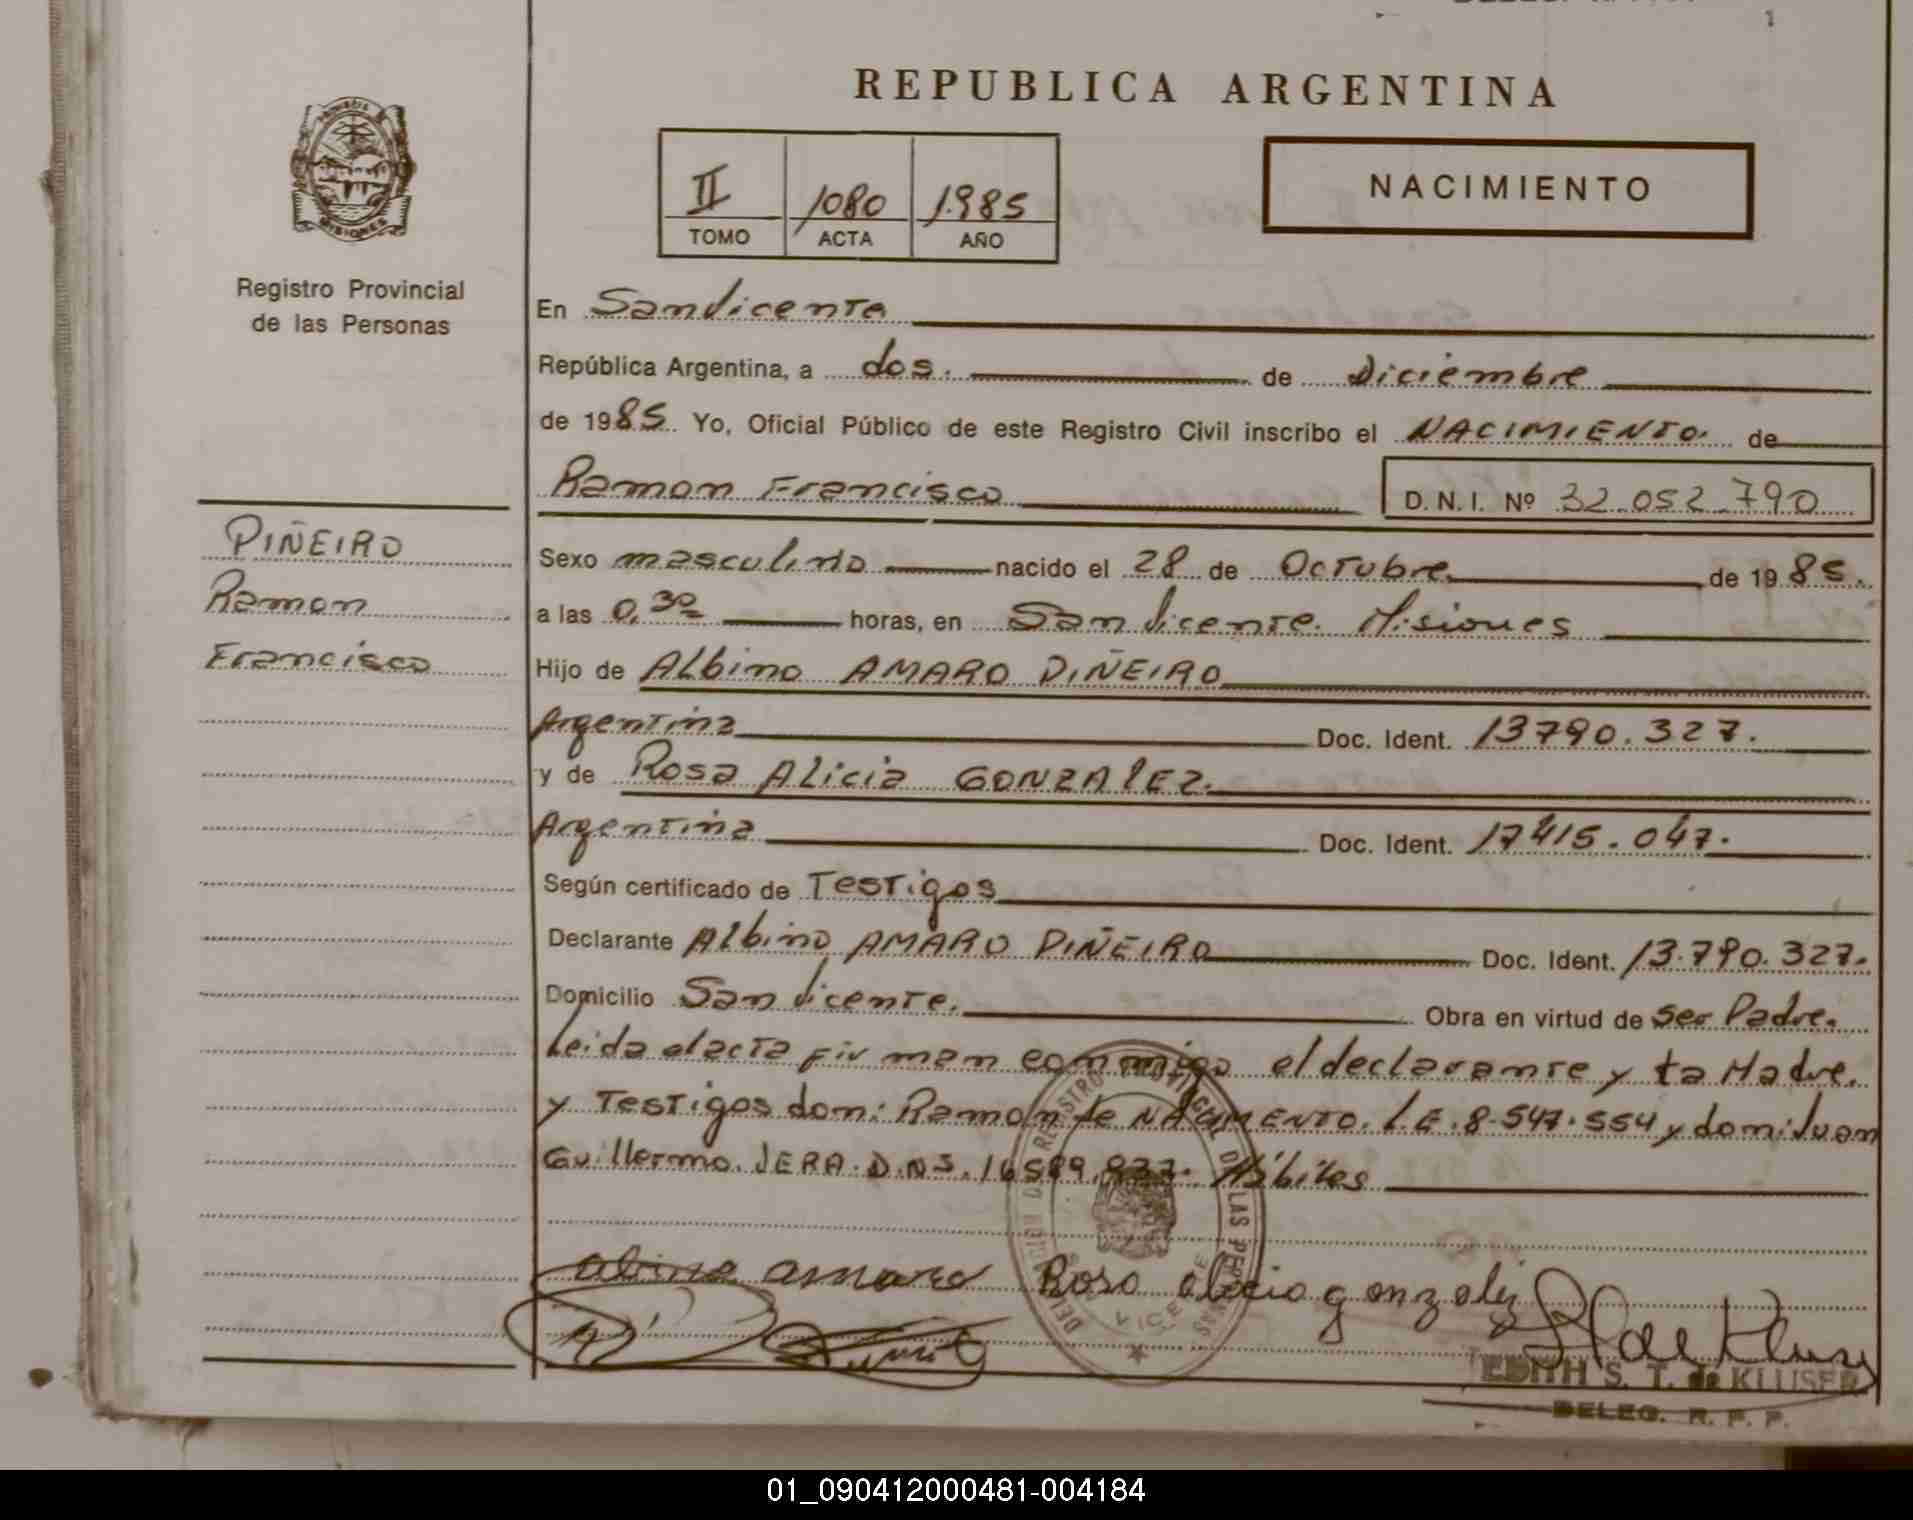 REPUBLICA ARGENTINA
II 1080 1.985
TOMO ACTA AÑO
NACIMIENTO
MISIONES
Registro Provincial
de las Personas
PIÑEIRO
Ramon
Francisco
En San Vicente
República Argentina, a dos. de Diciembre
de 1985. Yo, Oficial Público de este Registro Civil inscribo el NACIMIENTO. de
Ramon Francisco D. N. I. Nº 32.052.790
Sexo masculino nacido el 28 de Octubre de 1985.
a las 0,30 horas, en San Vicente. Misiones
Hijo de Albino AMARO PIÑEIRO
Argentina Doc. Ident. 13790.327.
y de Rosa Alicia GONZALEZ.
Argentina Doc. Ident. 17415.047.
Según certificado de Testigos
Declarante Albino AMARO PIÑEIRO Doc. Ident. 13.790.327.
Domicilio San Vicente. Obra en virtud de ser Padre.
Leida el acta firman conmigo el declarante y la Madre.
y Testigos don: Ramon de NACIMENTO. L.E. 8.547.554 y don: Juan
Guillermo. JERA. D.N.I. 16589.837. Hábiles
albino amaro Rosa alicia gonzalez
DELEGACION DEL REGISTRO PROVINCIAL DE LAS PERSONAS
VICENTE
EDITH S. T. de KLUSER
DELEG. R. P. P.
01_090412000481-004184